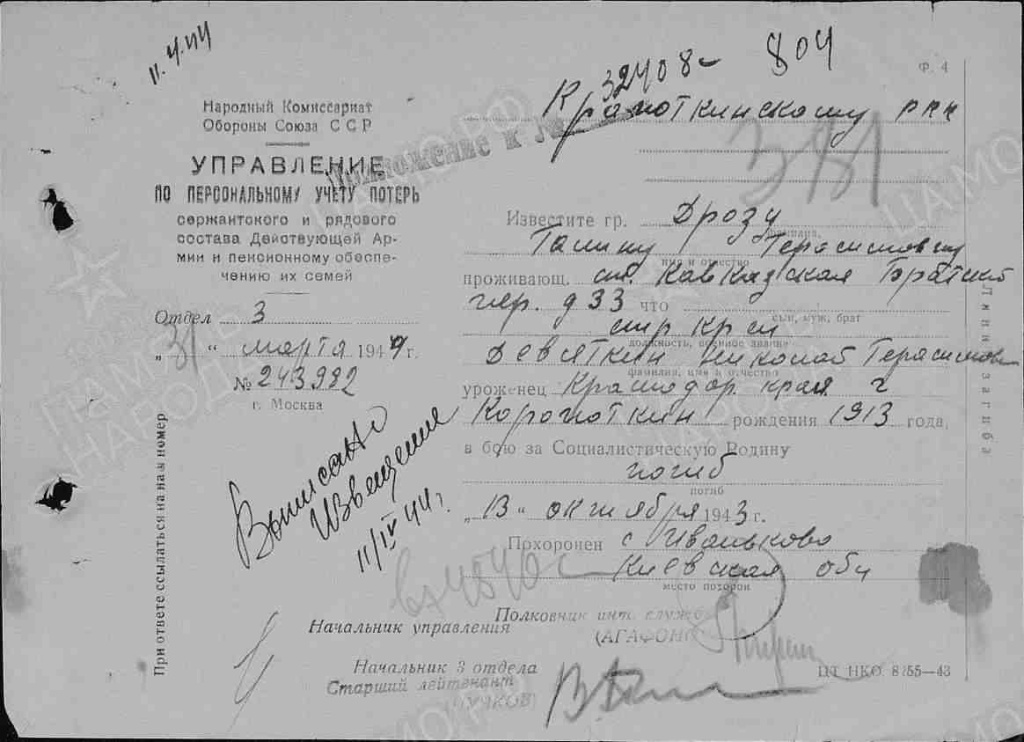 11.4.44
32408- 804
Ф. 4
Народный Комиссариат
Обороны Союза ССР
УПРАВЛЕНИЕ
ПО ПЕРСОНАЛЬНОМУ УЧЕТУ ПОТЕРЬ
сержантского и рядового
состава Действующей Ар-
мии и пенсионному обеспе-
чению их семей
Отдел 3
"31" марта 1944 г.
№ 243992
г. Москва
Приложение к
Кропоткинскому РВК
Известите гр. Дрозу
фамилия,
Галину Герасимовну
имя и отчество
проживающ. ст. Кавказская
пер. д 33 что
сын, муж, брат
стр кр-ц
должность, военное звание
Девяткин Николай Герасимов
фамилия, имя и отчество
уроженец Краснодар. края г
рождения 1913 года,
в бою за Социалистическую Родину
погиб
погиб
"13" октября 1943 г.
Похоронен с Иваньково
Киевская обл
место похорон
Выписано
Извещение
11/IV 44 г.
Полковник инт. службы
Начальник управления
Начальник 3 отдела
Старший лейтенант
ЦТ НКО 8255—43
При ответе ссылаться на наш номер
Линия загиба